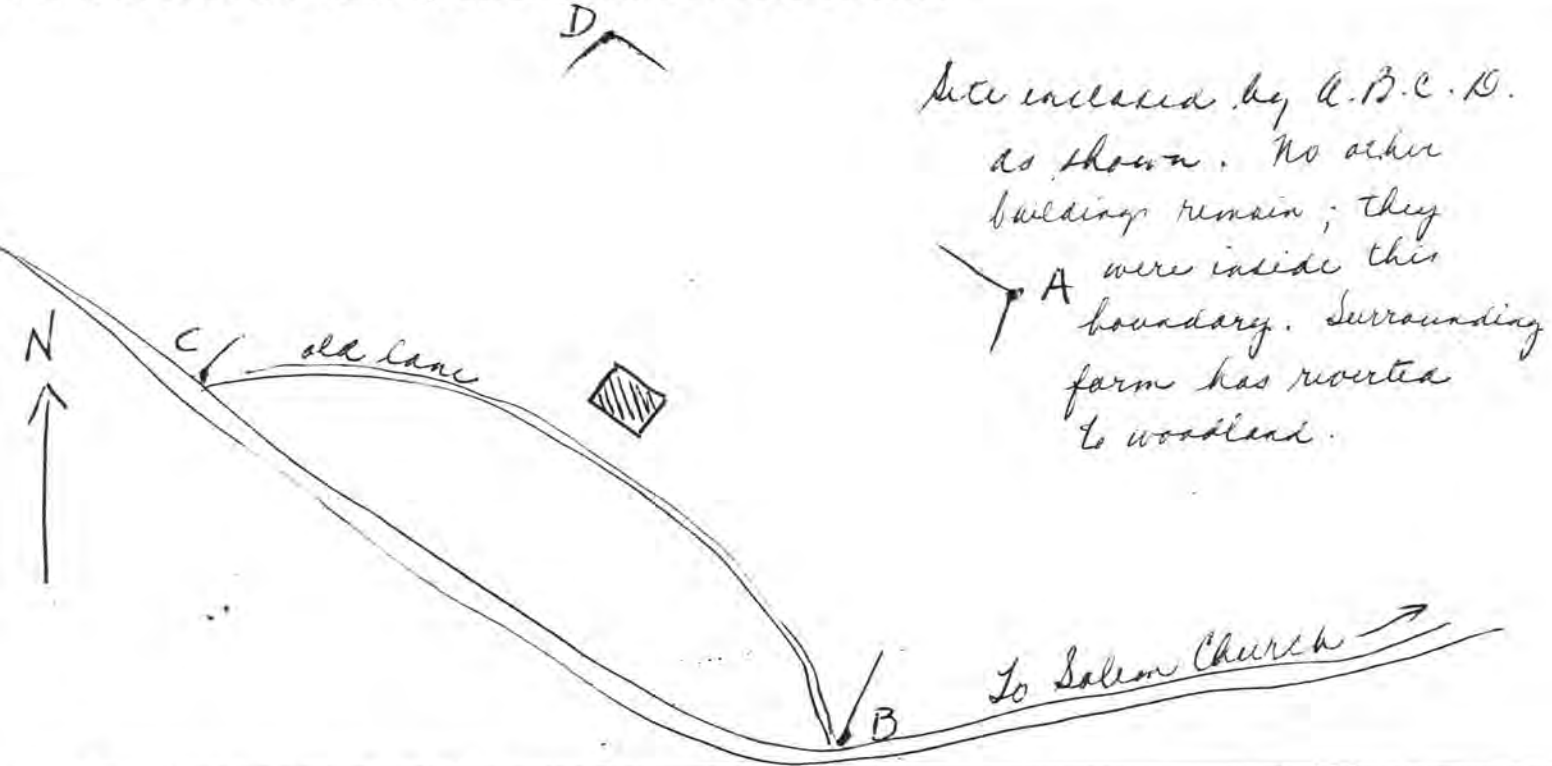 D
Site enclosed by A.B.C.D.
as shown. No other
buildings remain; they
A were inside this
boundary. Surrounding
farm has reverted
to woodland.
N
C
old lane
To Salem Church
B